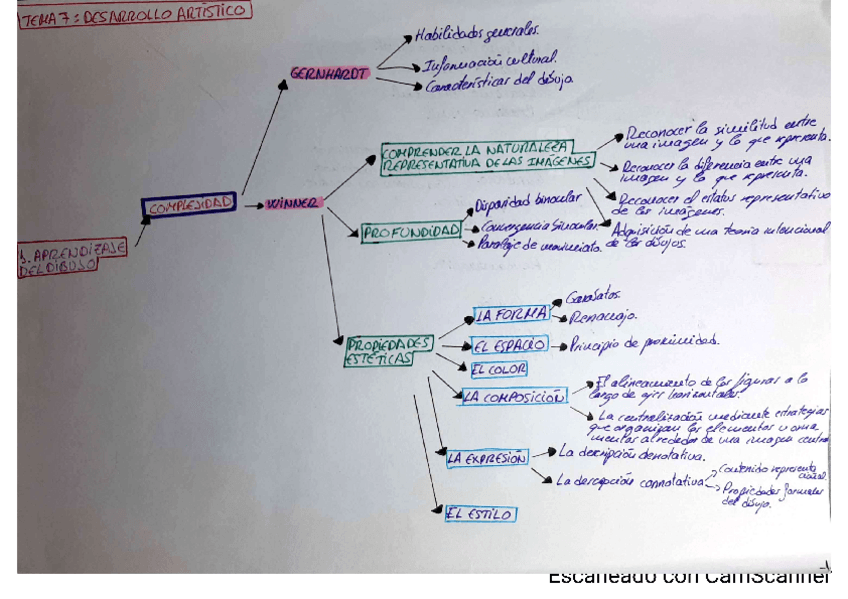 TEMA 7: DESARROLLO ARTÍSTICO
Habilidades generales.
GERNHARDT
Información cultural.
Características del dibujo.
COMPRENDER LA NATURALEZA
REPRESENTATIVA DE LAS IMÁGENES
Reconocer la similitud entre
una imagen y lo que representa.
Reconocer la diferencia entre una
imagen y lo que representa.
Reconocer el estatus representativo
de las imágenes.
Adquisición de una teoría intencional
de los dibujos.
COMPLEJIDAD
WINNER
PROFUNDIDAD
Disparidad binocular
Convergencia binocular.
Paralaje de movimiento.
APRENDIZAJE
DEL DIBUJO
PROPIEDADES
ESTÉTICAS
LA FORMA
Garabatos.
Renacuajo.
EL ESPACIO
Principio de proximidad.
EL COLOR
LA COMPOSICIÓN
El alineamiento de las figuras a lo
largo de ejes horizontales.
La centralización mediante estrategias
que organizan los elementos u orna
mentos alrededor de una imagen central
LA EXPRESIÓN
La descripción denotativa.
La descripción connotativa
Contenido representa
cional.
Propiedades formales
del dibujo.
EL ESTILO
Escaneado con CamScanner